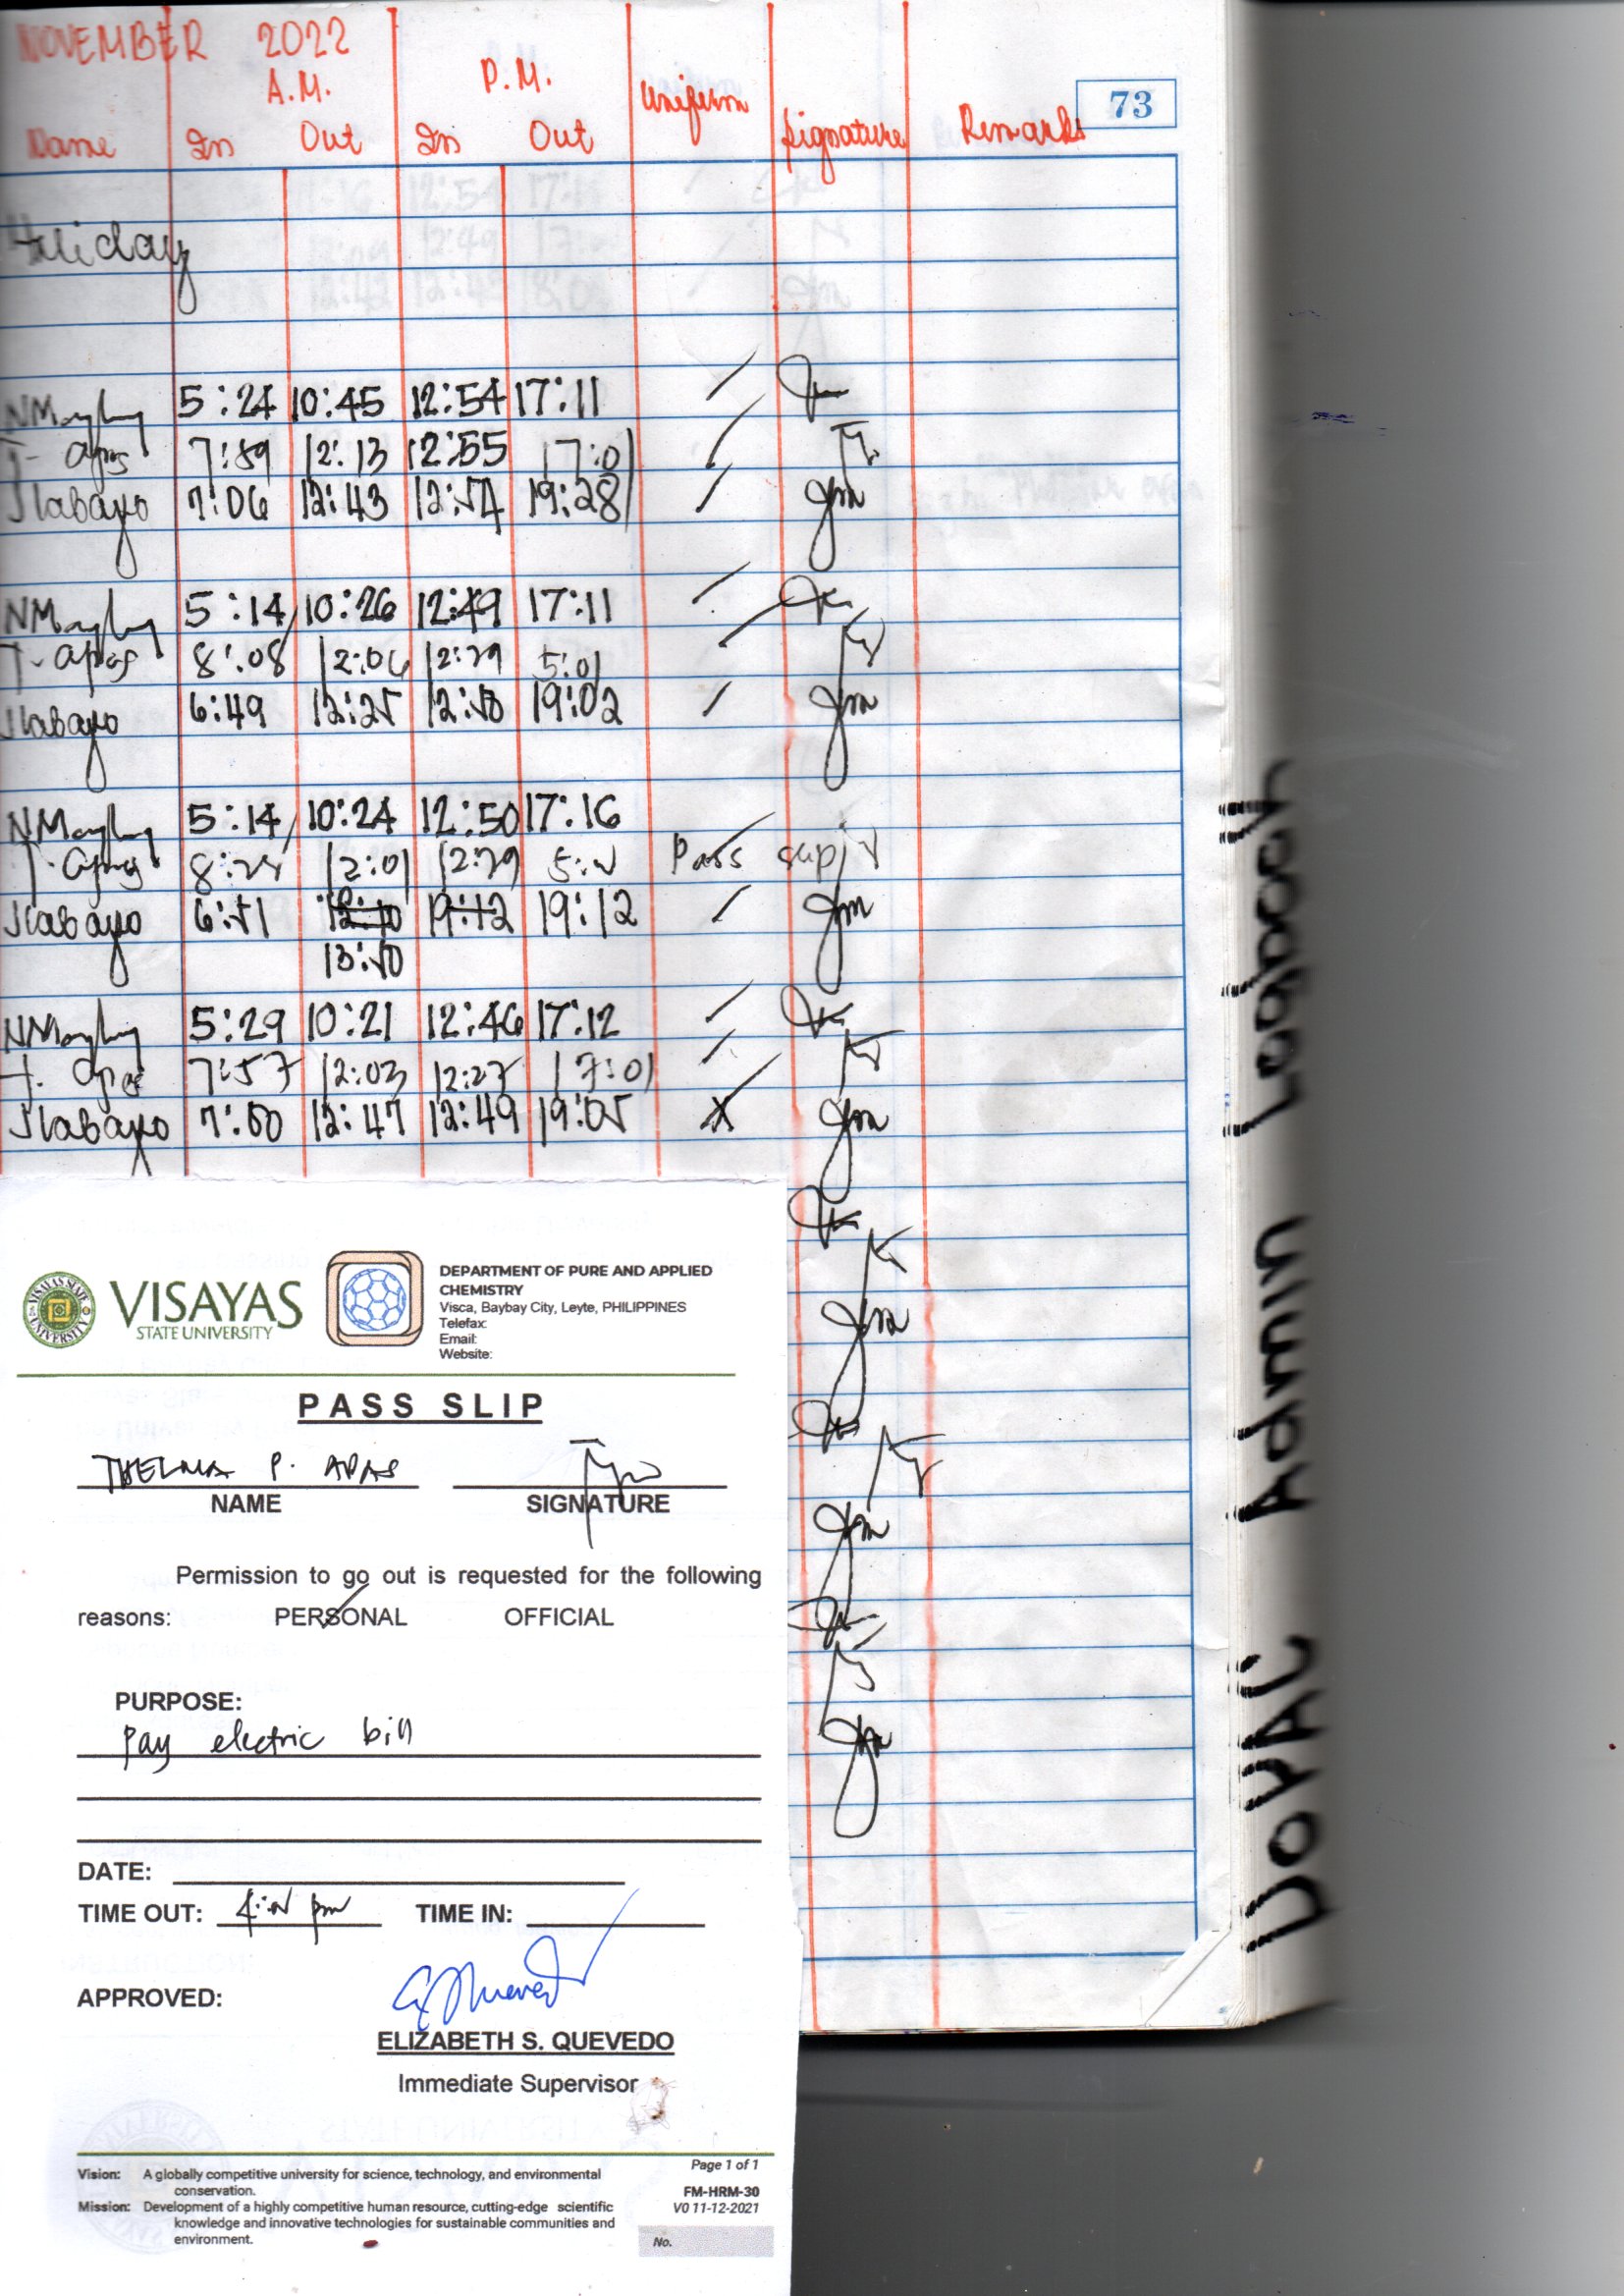 NOVEMBER 2022
A.M. P.M. Uniform 73
Name In Out In Out Signature Remarks
Holiday
5:24 10:45 12:54 17:11
T. Apas 7:59 12:13 12:55 17:01
Jlabayo 7:06 12:43 12:54 19:28
5:14 10:26 12:49 17:11
T. Apas 8:08 12:06 12:29 5:01
Jlabayo 6:49 12:25 12:50 19:02
5:14 10:24 12:50 17:16
T. Apas 12:01 12:29 Pass slip
Jlabayo 6:51 19:12 19:12
13:50
5:29 10:21 12:46 17:12
T. Apas 7:57 12:03 12:27 17:01
Jlabayo 7:00 12:47 12:49 19:05 X
VISAYAS
STATE UNIVERSITY
VISAYAS STATE UNIVERSITY
DEPARTMENT OF PURE AND APPLIED
CHEMISTRY
Visca, Baybay City, Leyte, PHILIPPINES
Telefax:
Email:
Website:
PASS SLIP
THELMA P. APAS
NAME SIGNATURE
Permission to go out is requested for the following
reasons: PERSONAL OFFICIAL
PURPOSE:
Pay electric bill
DATE:
TIME OUT: pm TIME IN:
APPROVED:
ELIZABETH S. QUEVEDO
Immediate Supervisor
Page 1 of 1
Vision: A globally competitive university for science, technology, and environmental
conservation.
FM-HRM-30
Mission: Development of a highly competitive human resource, cutting-edge scientific
V0 11-12-2021
knowledge and innovative technologies for sustainable communities and
environment.
No.
DOPAC Admin Logbook